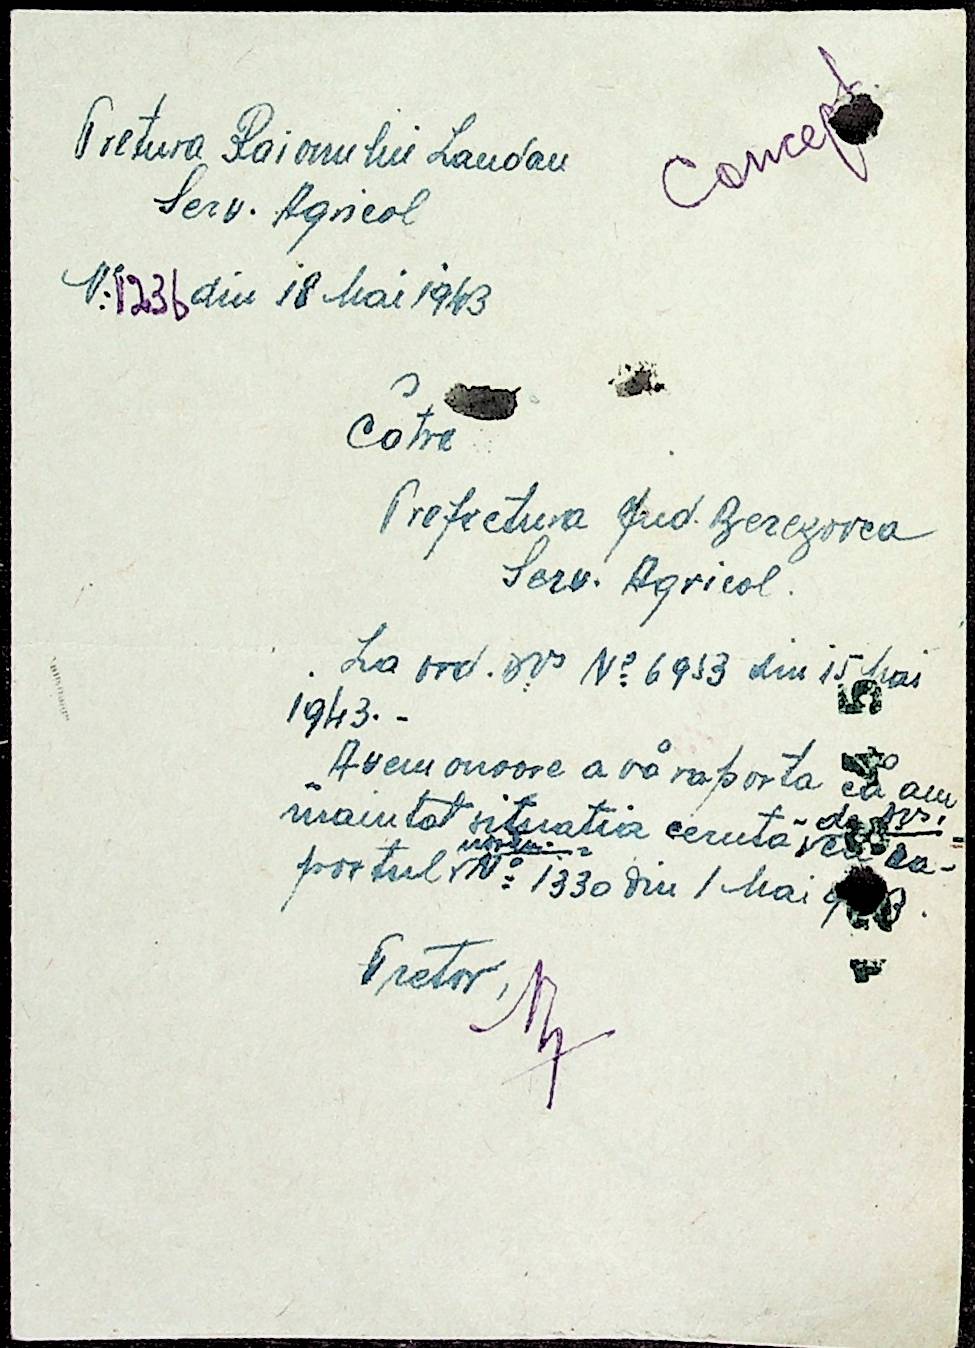 Concept.
Pretura Raionului Landau
Serv. Agricol
Nº 1236 din 18 Mai 1943
Către
Prefectura Jud. Berezovca
Serv. Agricol.
La ord. Dvs Nº 6953 din 15 Mai
1943. -
Avem onoare a vă raporta că am
înaintat situatia cerută, de Dvs. cu ra-
portul nostru Nº 1330 din 1 Mai 943.
Pretor,